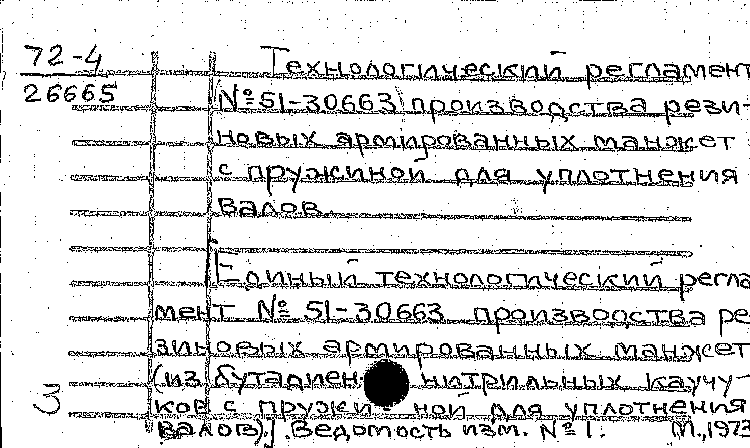 72-4
26665
Технологический регламент
№ 51-30663 производства рези-
новых армированных манжет
с пружиной для уплотнения
валов.
Единый технологический регла
мент № 51-30663 производства ре
зиновых армированных манжет
(из бутадиен нитрильных каучу-
ков с пружи ной для уплотнения
валов). Ведомость изм. № 1. М., 1973
3